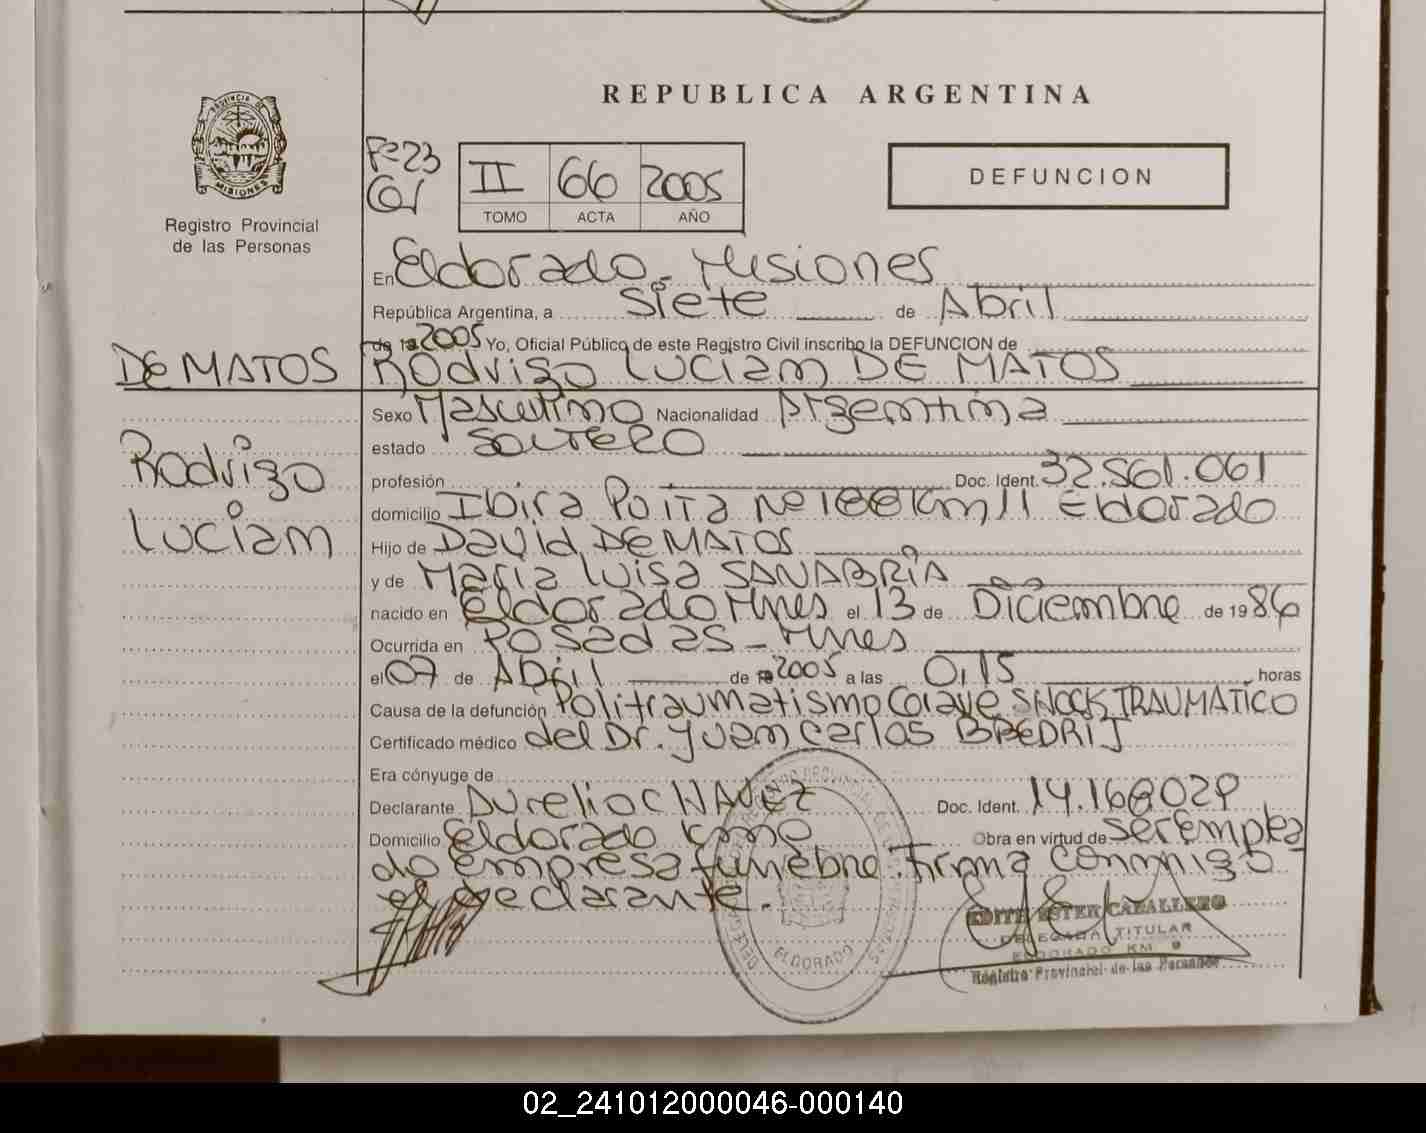 REPUBLICA ARGENTINA
PROVINCIA DE MISIONES
Registro Provincial
de las Personas
Fº 23
II 66 2005
TOMO ACTA AÑO
DEFUNCION
En Eldorado - Misiones
República Argentina, a siete de Abril
de 2005 Yo, Oficial Público de este Registro Civil inscribo la DEFUNCION de
DE MATOS Rodrigo Luciam DE MATOS
Sexo Masculino Nacionalidad Argentina
estado SOLTERO
Rodrigo
Luciam
profesión Doc. Ident. 32.561.061
domicilio Ibira Puita Nº 188 Km 11 Eldorado
Hijo de David DE MATOS
y de Maria Luisa SANABRIA
nacido en Eldorado Mnes el 13 de Diciembre de 1986
Ocurrida en Posadas - Mnes
el 07 de Abril de 2005 a las 0,15 horas
Causa de la defunción Politraumatismo Grave SHOCK TRAUMATICO
Certificado médico del Dr. Juan Carlos
Era cónyuge de
Declarante Aurelio CHAVEZ Doc. Ident.
Domicilio Eldorado Obra en virtud de ser emplea
do empresa funebre. Firma conmigo
el declarante.
ELDORADO
EDITH ESTER CABALLERO
DELEGADA TITULAR
ELDORADO KM 9
Registro Provincial de las Personas
02_241012000046-000140